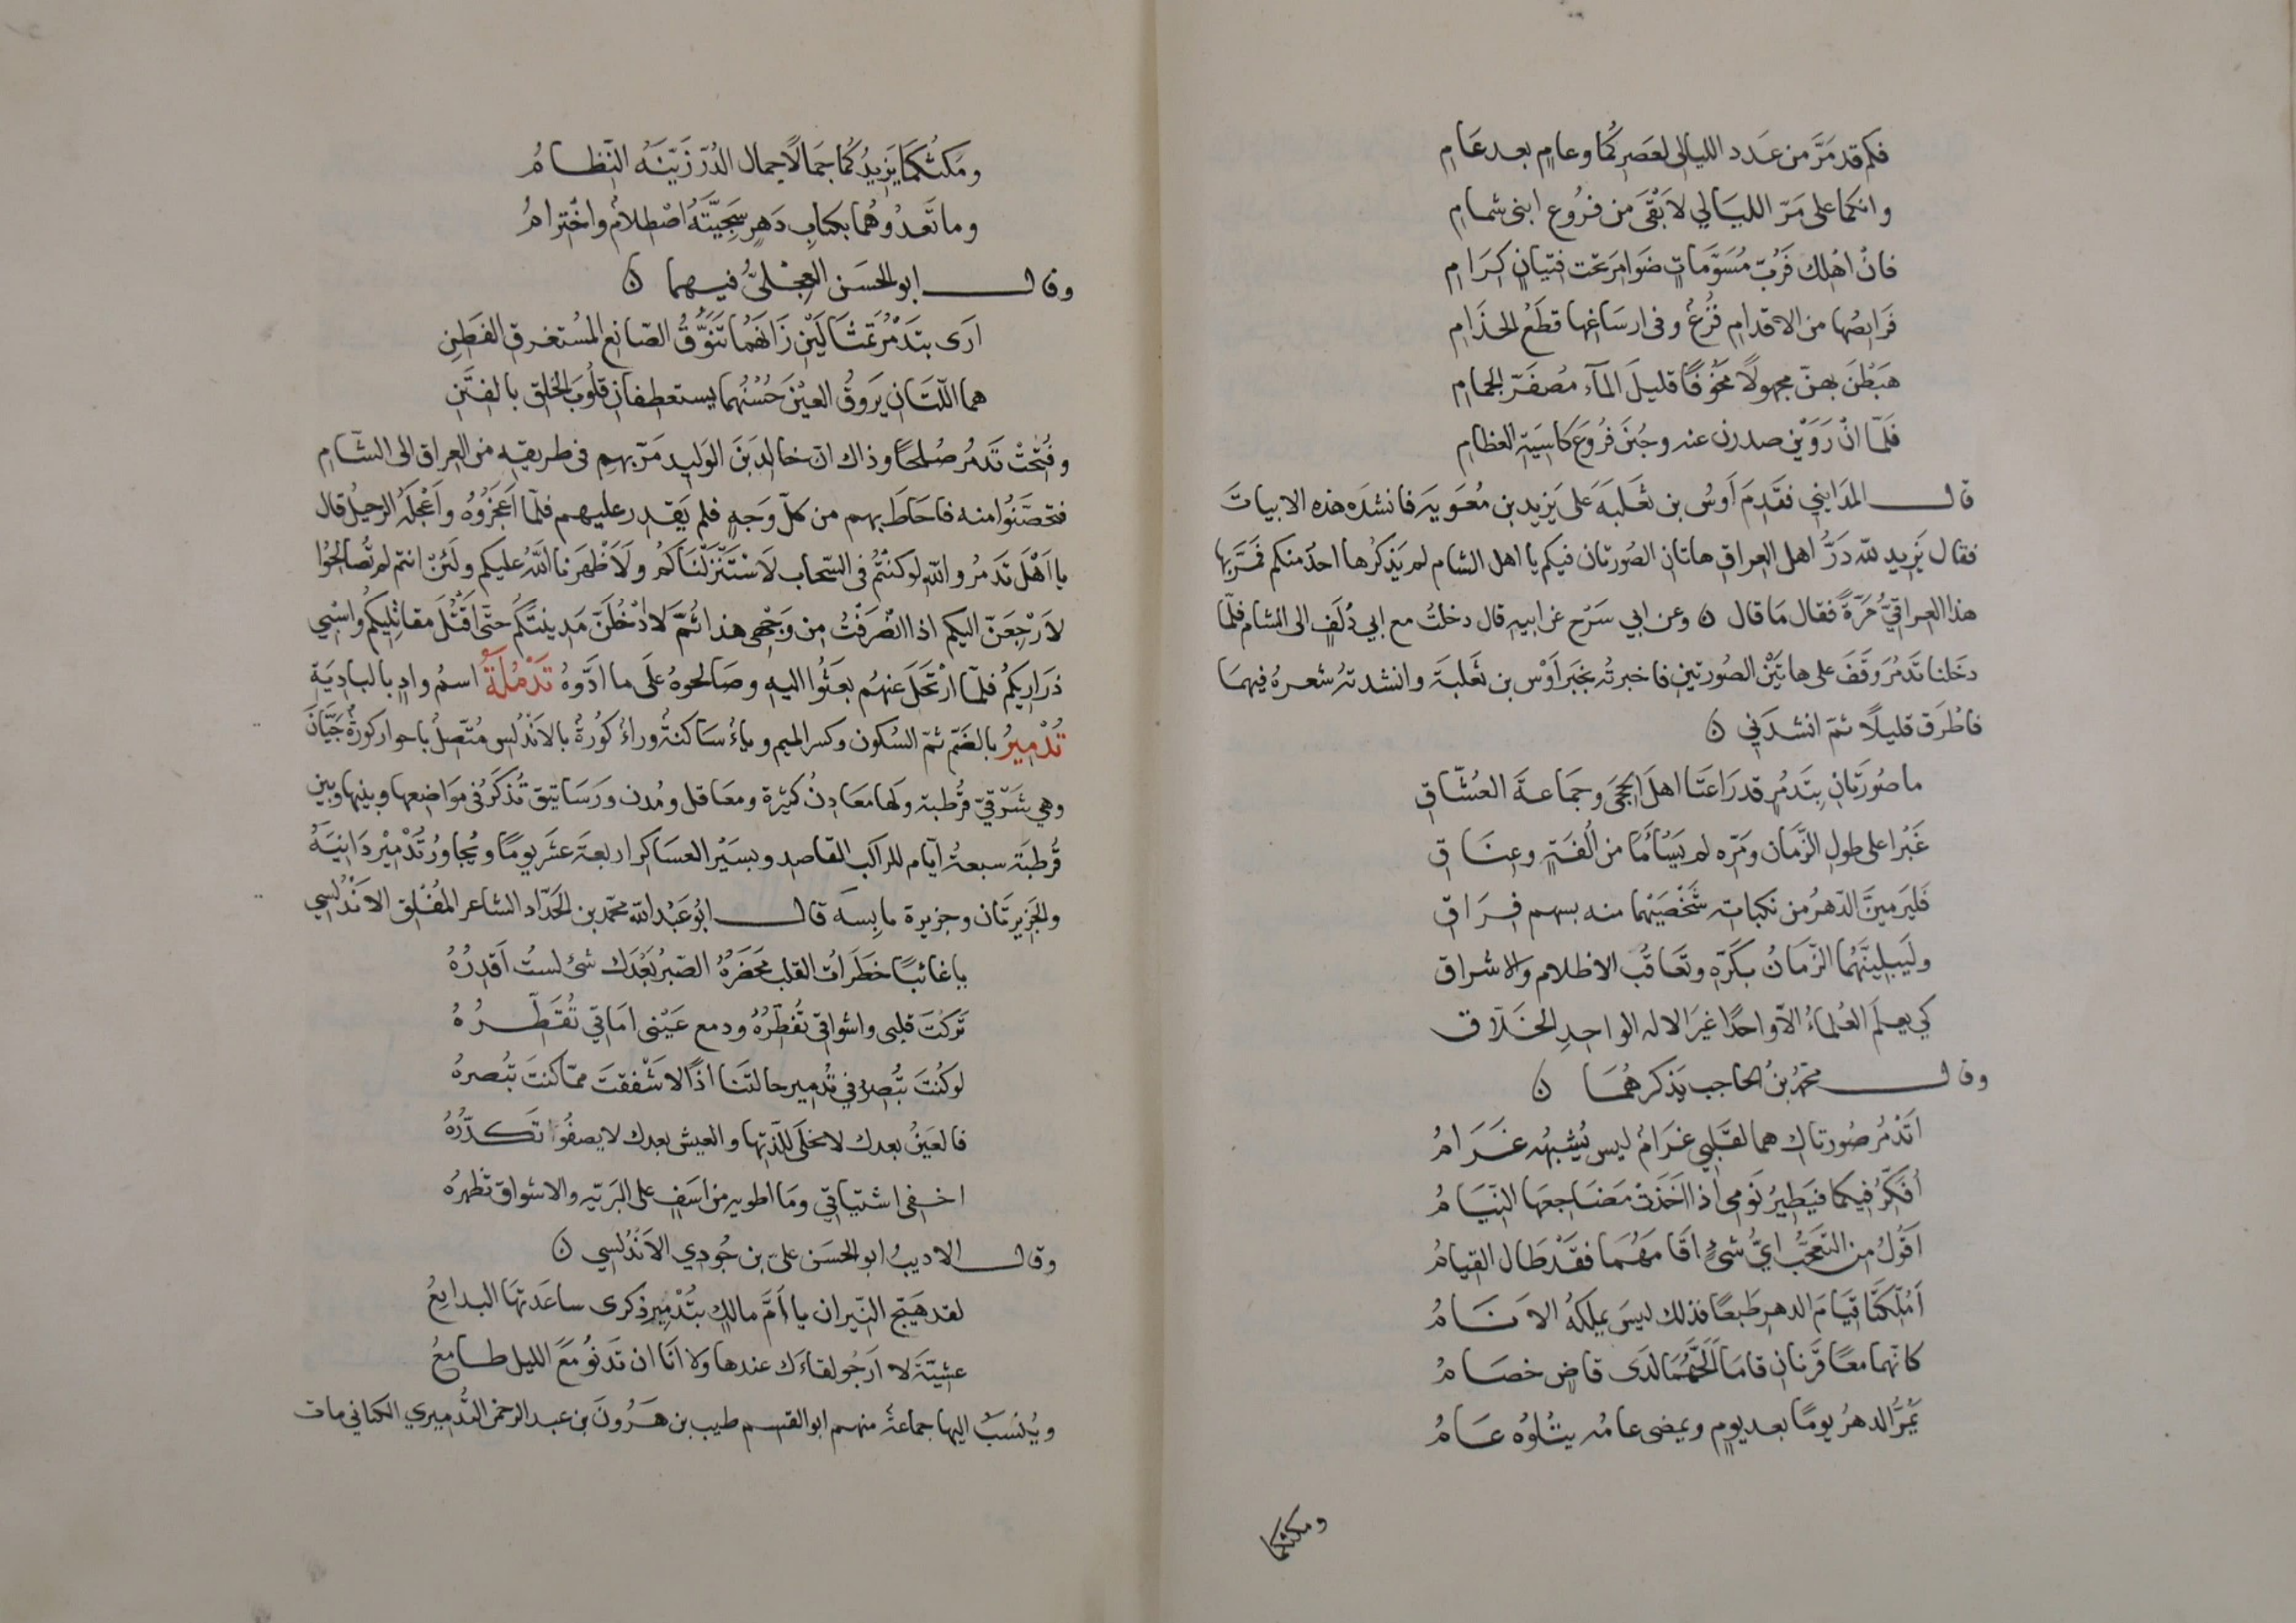 فكم قد مَرَّ من عَدَد الليالى لعَصرِكُما وعامٍ بعد عَامِ
وانكما على مَرّ الليَالي لَأبْقَى من فرُوع ابنى شمامِ
فانْ اهْلك فَرُبّ مُسَوَّماتٍ ضَوامِرَ تحت فتيانٍ كِرَامِ
فَرَايصُها من الاقدامِ فُزعٌ وفى ارسَاغها قطَعُ الخذَامِ
هَبَطْنَ بهنّ مجهولًا مَخُوفًا قليلَ المآء مُصفَرّ الجمامِ
فَلَمّا انْ رَوَيْن صدرن عنه وجُبنَ فرُوعَ كاسيَة العظامِ
قال المدَايني فقَدِمَ أوسُ بن ثعَلبَةَ على يَزيد بن مُعَويَة فانشدَه هذه الابياتَ
فقال يَزِيد لله دَرُّ اهل العراق هاتان الصُورتان فيكم يا اهل الشام لم يَذكرُها احدٌ منكم فمَرَّ بها
هذا العِراقيُّ مَرّةً فقال مَا قال ن وعن ابي سَرْح عن ابيه قال دخلتُ مع ابي دُلَفٍ الى الشام فلمّا
دخَلنا تَدمُرَ وَقَفَ على هاتَيْن الصُورتين فاخبرتُه بخبَر أوْس بن ثَعلبَة وانشدتهُ شعرهُ فيهمَا
فاطْرَق قليلًا ثمّ انشدَني ن
ما صُورَتَانِ بِتَدمُرٍ قد رَاعَتَا اهلَ الحِجَى وجَمَاعَةَ العُشّاقِ
غَبَرا على طولِ الزّمَان ومَرّه لم يَسْأمَا من اُلفَةٍ وعِنَاقِ
فَليَرميَنَّ الدّهرُ من نكباته شخْصَيْهما منه بسهم فِرَاقِ
ولَيَبلِيَنَّهُما الزّمَانُ بكَرّهِ وتَعَاقُبُ الاظلام والاشراق
كي يعلمَ العُلماءُ الّا واحدًا غيرَ الاله الواحِدِ الخَلّاق
وقال محمّدُ بنُ الحاجب يَذكرهُمَا ن
اتَدْمُر صُورتاكِ هما لقَلبي غرَامٌ ليس يُشبِهُه غَرَامُ
أفكّرُ فيكما فيَطيِرُ نَومى اذا اخذتْ مَضَاجعَها النّيَامُ
اقوُلُ من التعَجُّب ايُّ شئٍ اقَامَهُمَا فقَدْ طَال القِيامُ
اَمُلّكتَا قيَامَ الدهرِ طَبعًا فذلك ليسَ يملكهُ الانَامُ
كانّهما معًا قَرْنانِ قامَا اَلَحّهمَا لدَى قاضٍ خصَامُ
يَمُرُّ الدهرُ يومًا بعد يومٍ ويمضى عامُه يتلُوهُ عَامُ
ومكثكما
ومَكثُكمَا يَزيدُكُما جَمَالًا جمال الدُرّ زَيّنَهُ النّظامُ
وما تَعدُوهُما بكتابِ دَهرٍ سَجِيَّتَهُ اصْطلامٌ واخْترامُ
وقال ابو الحسَن العِجْلىُّ فيهما ن
ارَى بتَدْمُرَ تمثَالَيْنِ زَانَهُما تَنَوُّقُ الصّانِع المُستغرق الفَطِنِ
هما اللّتَان يَروقُ العيْنَ حُسْنُهما يستعطفان قلُوبَ الخلق بالفتَنِ
وفُتِحَتْ تَدمُرُ صُلحًا وذاك انّ خالدَ بنَ الوَليد مَرّ بهم فى طريقه من العراق الى الشّام
فتحصَّنُوا منه فاحَاطَ بهم من كلّ وَجهٍ فلم يَقدر عليهم فلمّا اَعجَزُوهُ واَعْجَلَهُ الرحيلُ قال
يا اَهْلَ تَدمُر واللهِ لو كنتُمْ فى السّحاب لاسْتَنْزَلْنَاكُم ولَاَظْهَرنا اللهُ عليكم ولَئنْ انتم لم تُصَالحُوا
لاَرْجِعَنّ اليكم اذا انصَرَفْتُ من وَجْهى هذا ثُمَّ لَادْخُلَنّ مَدينتَكُم حتّى اَقتُلَ مقاتِليكُم واَسْبي
ذرَاريكُم فلمّا ارْتحَلَ عنهُم بعَثُوا اليه وصَالحوهُ علَى ما ادَّوهُ تَدْمُلَةُ اسمُ وادٍ بالبادِيَةِ
تُدْمِيرُ بالضَمّ ثمّ السُكون وكسر الميم وياءُ سَاكنةُ وراءُ كُورَةٌ بالاَندُلسِ مُتّصلُ باحواز كورَةِ جَيَّانَ
وهي شَرْقيّ قُرطبة ولَها معَادِنُ كثيرة ومعَاقل ومُدن ورَسَاتيق تُذكَرُ فى مَوَاضعها وبينها وبين
قُرطبَة سبعةُ ايّام للراكب القاصد وبسَيْر العسَاكر اربعة عَشَر يومًا ويُجاورُ تُدْمِيْر دَانيَةُ
والجَزيرتَان وجزيرة يابِسَه قال ابُو عَبْد الله محمّد بن الحَدّاد الشاعر المُفْلِق الانْدلسي
يا غائبًا خَطَراتُ القلب مَحضَرُهُ الصّبرُ بَعْدَك شئ لستُ اَقدرُهُ
تَركتَ قلبى واشواقي تُفَطّرُهُ ودمع عَيْنى امَاقي تُقَطّرُهُ
لو كنْتَ تُبْصِرُ في تُدمِير حالتَنا اذًا لَاشْفَقتَ ممّا كنتَ تبُصرهُ
فالعَيْنُ بعدك لا تخلَى للذّتها والعيش بعدك لا يصفُو تَكدّرُهُ
اخفى اشتياقي ومَا اطويه من اسَفٍ على البَريّه والاشواق تظهرُه
وقال الاديبُ ابو الحسَن علىّ بن جُودي الاَنْدُلسي ن
لقد هَيّج النّيران يا اُمَّ مالِكٍ بتُدْمِيرِ ذكرى ساعَدتهَا البدايعُ
عشِيّةَ لا اَرجُو لقاءَك عندها ولا انَا ان تَدنُو مَعَ الليل طامعُ
ويُنْسَبُ اليها جماعةُ منهم ابو القسم طيب بن هَرُونَ بن عبد الرحمن التُدميري الكناني مات